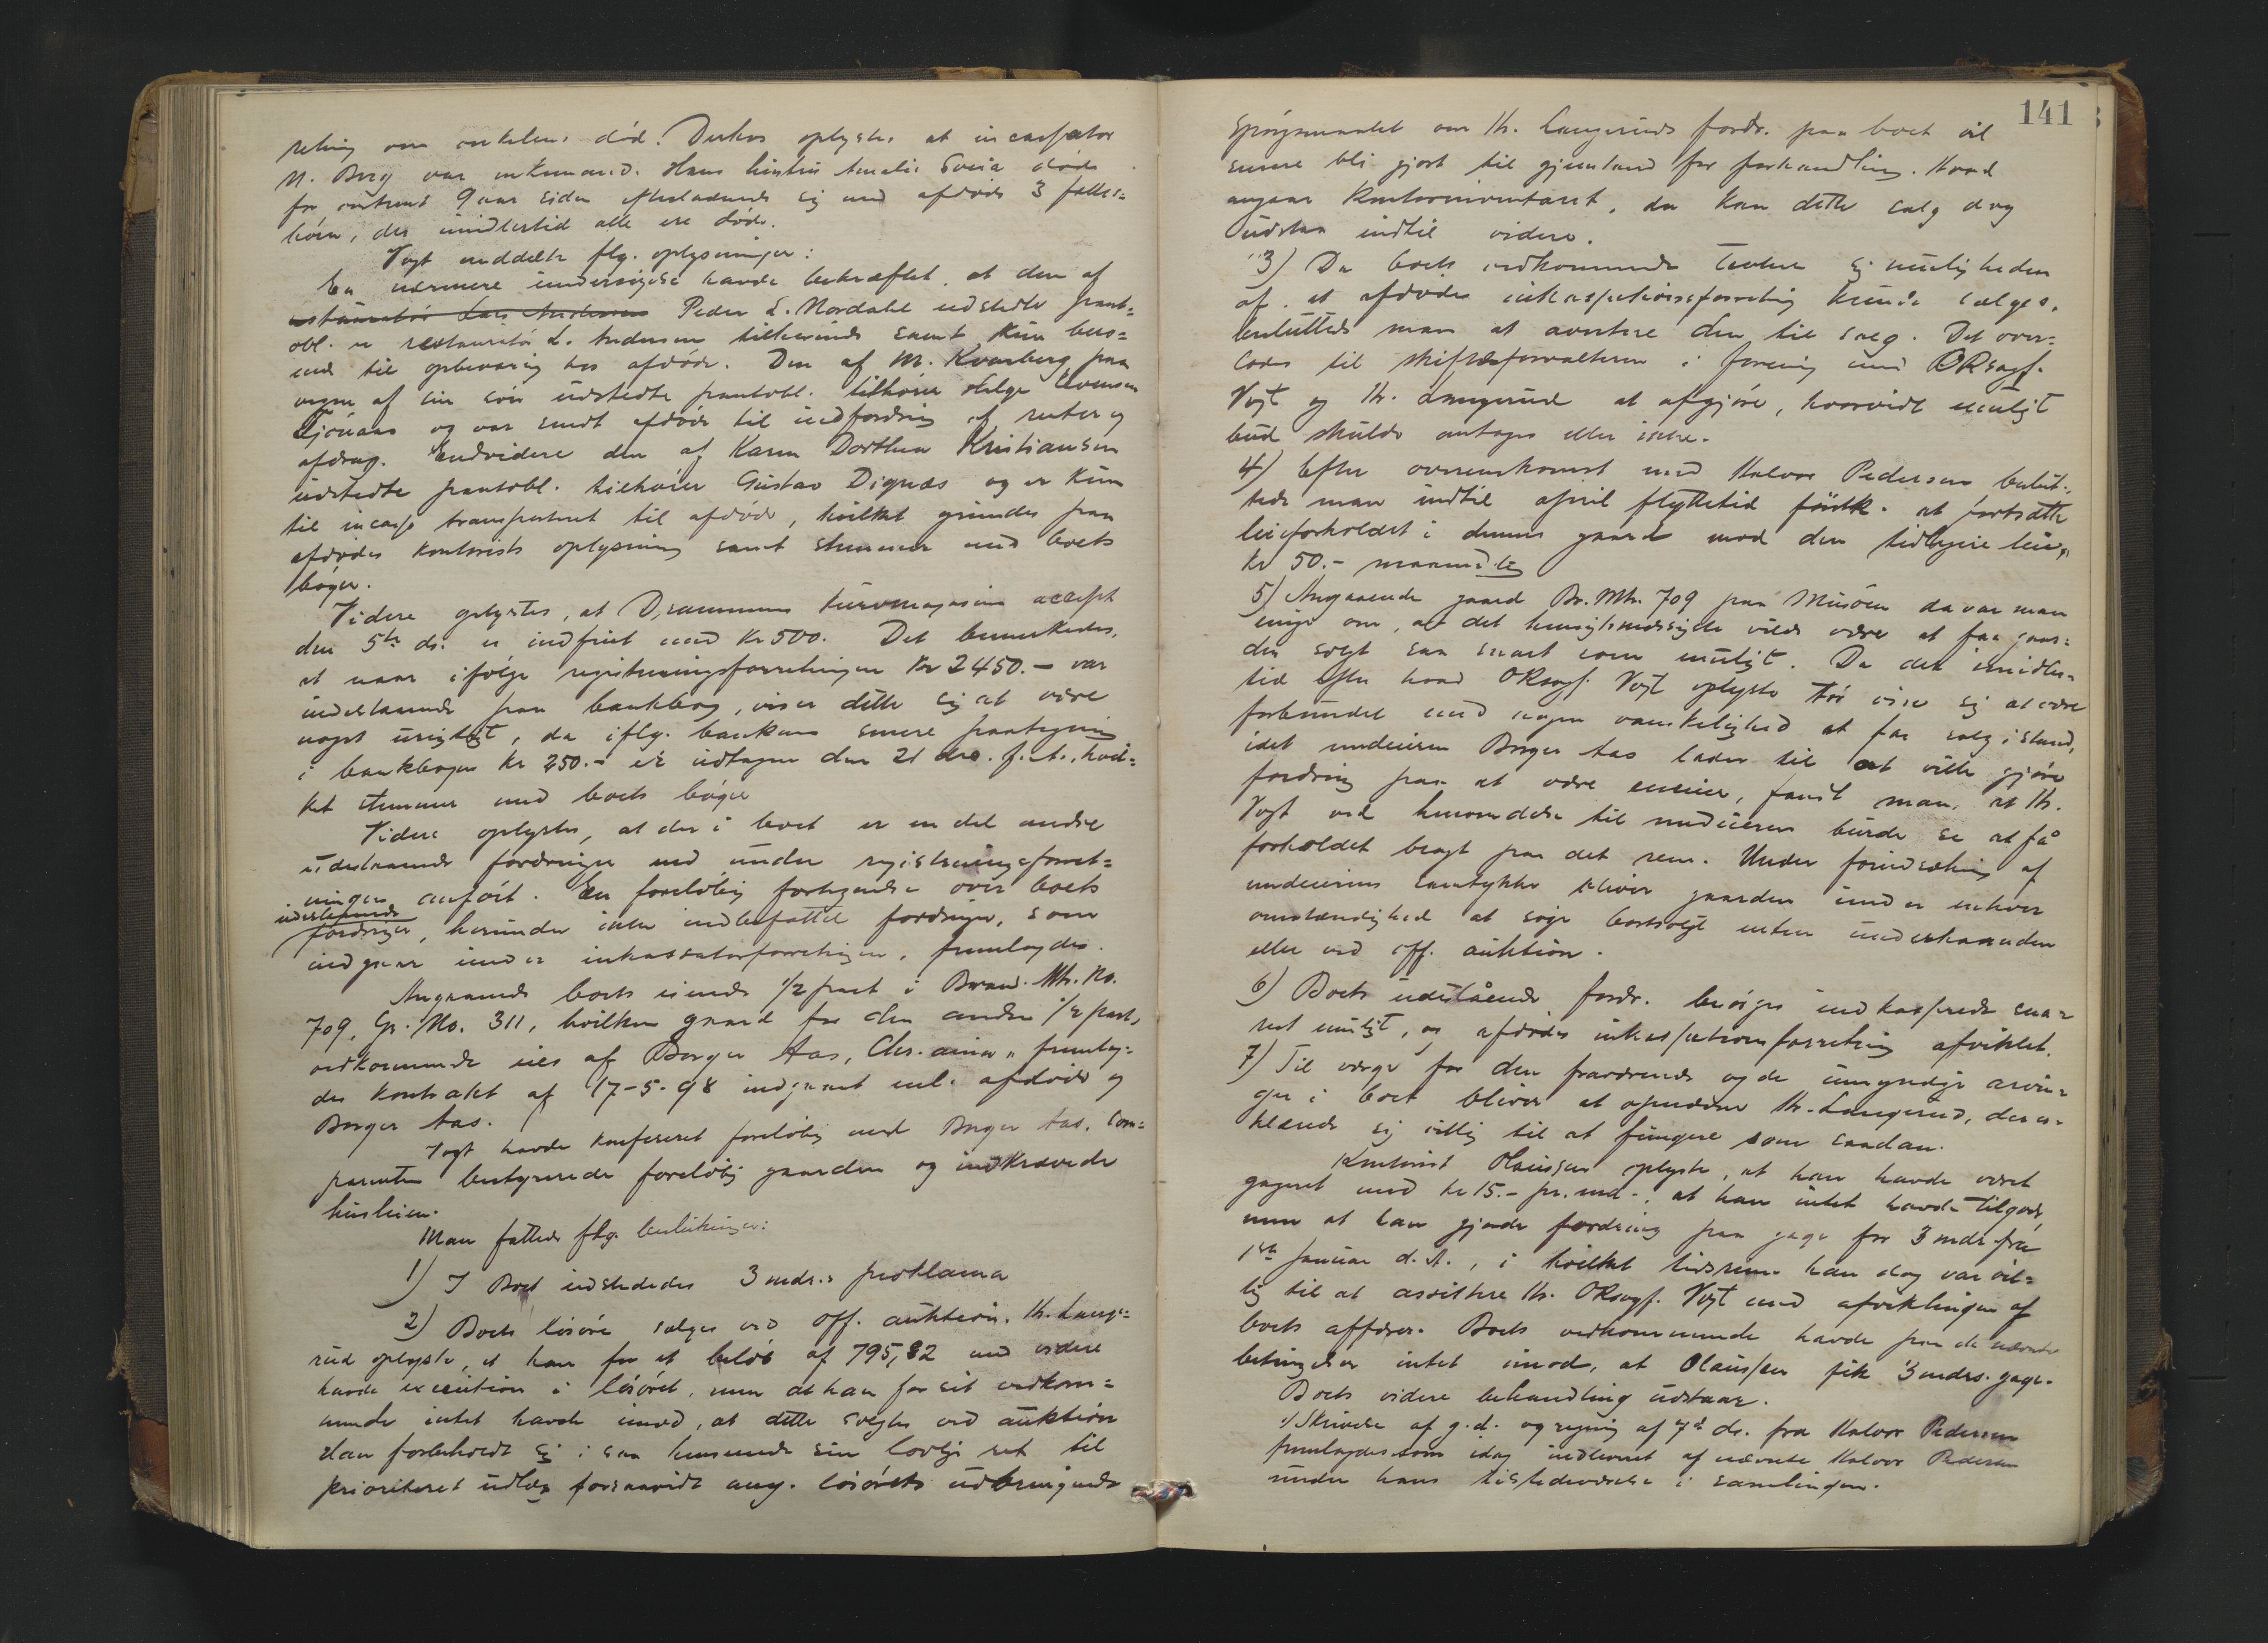 retning om onkelens død. Derhos oplystes at incassator
N. Berg var enkemand. Hans hustru Amalie Sofia døde
for omtrent 9 aar siden efterladende sig med afdøde 3 fælles-
børn, der imidlertid alle ere døde.
Vogt meddelte flg. oplysninger:
En nærmere undersøgelse havde bekræftet, at den af
restauratør Lars Andersen Peder L. Nordahl udstedte pant-
obl. er restauratør L. Andersen tilhørende samt kun bero-
ende til opbevaring hos afdøde. Den af M. Kvarberg paa
vegne af sin søn udstedte pantobl. tilhører Helge Evensen
Tjönaas og var sendt afdøde til indfordring af renter og
afdrag. Endvidere den af Karen Dorthea Kristiansen
udstedte pantobl. tilhører Gustav Dignæs og er kun
til incasso transporteret til afdøde, hvilket grundes paa
afdødes kontorists oplysning samt stemmer med boets
bøger.
Videre oplystes, at Drammens kurvmagasins accept
den 5te ds. er indfriet med Kr 500. Det bemerkedes,
at naar ifølge registreringsforretningen Kr 2450.- var
indestaaende paa bankbog, viser dette sig at være
noget urigtigt, da iflg. bankens senere paategning
i bankbogen Kr 250.- er udtagne den 21 dec. f. A., hvil-
ket stemmer med boets bøger
Videre oplystes, at der i boet er en del andre
udestaaende fordringer end under registreringsforret-
ningen anført. En foreløbig fortegnelse over boets
udestaaende
fordringer, herunder ikke indbefattet fordringer, som
indgaar under inkassatorforretningen, fremlagdes.
Angaaende boets eiende 1/2 part i Brand. Mtr. No.
709, Gr. No. 311, hvilken gaard for den anden 1/2 parts
vedkommende eies af Borger Aas, Chr.ania, fremlag-
des kontrakt af 17-5-98 indgaaet mel. afdøde og
Borger Aas.
Vogt havde konfereret foreløbig med Borger Aas. Com-
parenten bestyrede foreløbig gaarden og indkrævede
husleien.
Man fattede flg. beslutninger:
1) I Boet udstededes 3 mdr.s proklama
2) Boets løsøre sælges ved off. auktion. Hr. Lange-
rud oplyste, at han for et beløb af 795,82 med videre
havde execution i løsøret, men at han for sit vedkom-
mende intet havde imod, at dette solgtes ved auktion
Han forbeholdt sig i saa henseende sin lovlige ret til
prioriteret udlæg forsaavidt ang. løsørets udbringende
141
Spørgsmaalet om Hr. Langeruds fordr. paa boet vil
senere bli gjort til gjenstand for forhandling. Hvad
angaar kontorinventaret, da kan dette salg dog
udstaa indtil videre.
3) Da boets vedkommende tænkte sig muligheden
af, at afdødes inkassationsforretning kunde sælges,
besluttede man at avertere den til salg. Det over-
lodes til skifteforvalteren i forening med ORsagf.
Vogt og Hr. Langerud at afgjøre, hvorvidt muligt
bud skulde antages eller ikke.
4) Efter overenskomst med Halvor Pedersen beslut-
tede man indtil april flyttetid førstk. at fortsætte
leieforholdet i dennes gaard mod den tidligere leie,
Kr 50.- maanedlig
5) Angaaende gaard Br. Mtr. 709 paa Musöen da var man
enige om, at det hensigtsmæssigste vilde være at faa gaar-
den solgt saa snart som muligt. Da det imidler-
tid efter hvad ORsagf. Vogt oplyste tør vise sig at være
forbundet med nogen vanskelighed at faa salg istand,
idet medeieren Borger Aas lader til at ville gjøre
fordring paa at være eneeier, fandt man, at Hr.
Vogt ved henvendelse til medeieren burde se at få
forholdet bragt paa det rene. Under forudsætning af
medeierens samtykke bliver gaarden under enhver
omstændighed at søge bortsolgt enten underhaanden
eller ved off. auktion.
6) Boets udestående fordr. besørges indkasserede snar-
rest muligt, og afdødes inkassationsforretning afviklet.
7) Til værge for den fraværende og de umyndige arvin-
ger i boet bliver at opnævne Hr. Langerud, der er-
klærede sig villig til at fungere som saadan.
Kontorist Olaussen oplyste, at han havde været
gageret med kr 15.- pr. md., at han intet havde tilgode,
men at han gjorde fordring paa gage for 3 mdr. fra
1ste Januar d. A., i hvilket tidsrum han dog var vil-
lig til at assistere Hr. ORsagf. Vogt med afviklingen af
boets affærer. Boets vedkommende havde paa de nævnte
betingelser intet imod, at Olaussen fik 3 mdrs. gage.
Boets videre behandling udstaar.
Skrivelse af g.d. og regning af 7d ds. fra Halvor Pedersen
fremlagdes som idag indleveret af nævnte Halvor Pedersen
under hans tilstedeværelse i samlingen.